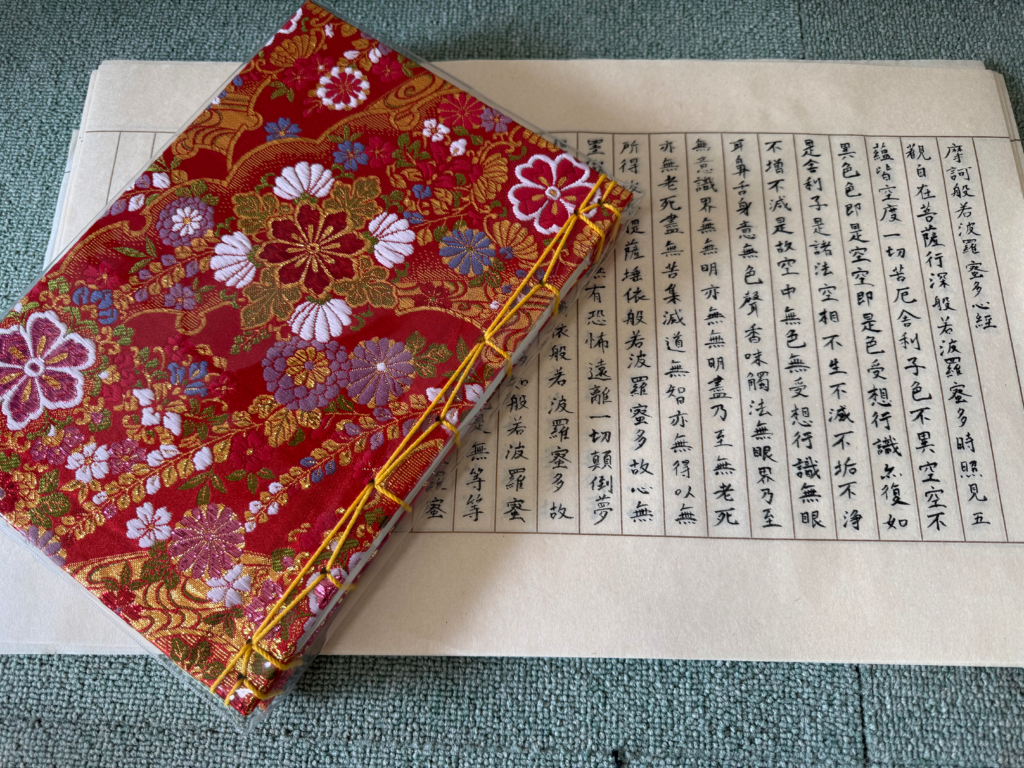 摩訶般若波羅蜜多心経
觀自在菩薩行深般若波羅蜜多時照見五
蘊皆空度一切苦厄舍利子色不異空空不
異色色即是空空即是色受想行識亦復如
是舍利子是諸法空相不生不滅不垢不浄
不増不減是故空中無色無受想行識無眼
耳鼻舌身意無色聲香味觸法無眼界乃至
無意識界無無明亦無無明盡乃至無老死
亦無老死盡無苦集滅道無智亦無得以無
所得故提薩埵依般若波羅蜜多故心無
罣無有恐怖遠離一切顛倒夢
依般若波羅蜜多故
知般若波羅蜜
是無等等
蜜